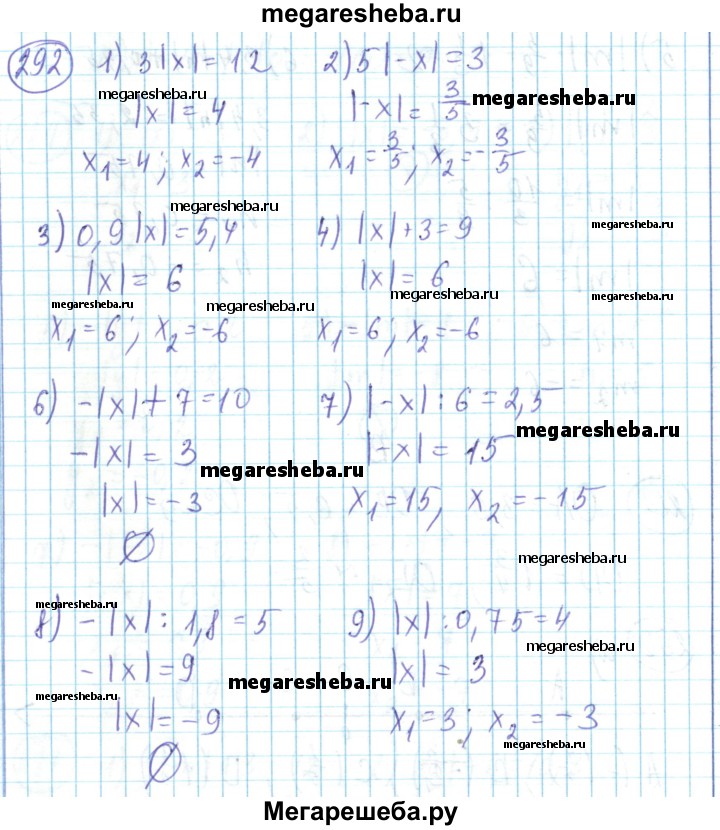 megaresheba.ru
292 1) 3|x|=12 2) 5|-x|=3
megaresheba.ru
|x|=4 |-x|=3/5 megaresheba.ru
x₁=4; x₂=-4 x₁=3/5; x₂=-3/5
megaresheba.ru
3) 0,9|x|=5,4 4) |x|+3=9 megaresheba.ru
|x|=6 |x|=6
megaresheba.ru megaresheba.ru megaresheba.ru megaresheba.ru
x₁=6; x₂=-6 x₁=6; x₂=-6
6) -|x|+7=10 7) |-x|:6=2,5
megaresheba.ru
-|x|=3 |-x|=15
megaresheba.ru
|x|=-3 x₁=15, x₂=-15
∅
megaresheba.ru
megaresheba.ru
8) -|x|:1,8=5 9) |x|:0,75=4
megaresheba.ru
-|x|=9 |x|=3
megaresheba.ru megaresheba.ru
|x|=-9 x₁=3; x₂=-3
megaresheba.ru
∅
Мегарешеба.ру